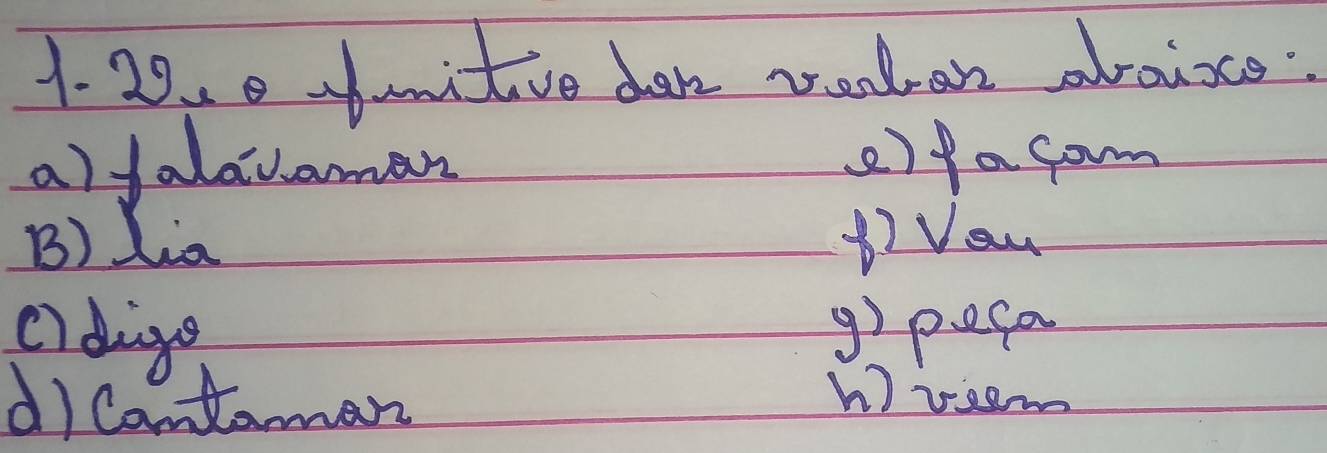 1- Dê o infinitivo dos verbos abaixo:
a) falávamos
e) façam
B) lia
f) Vou
c) digo
g) peça
d) Cantamos
h) veem